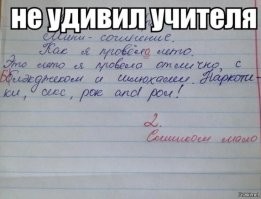 не удивил учителя
Мини-сочинение.
Как я провёла лето.
Это лето я провела отлично, с
и шлюхами. Наркоти-
ки, секс, рок and рол!
2.
Слишком мало